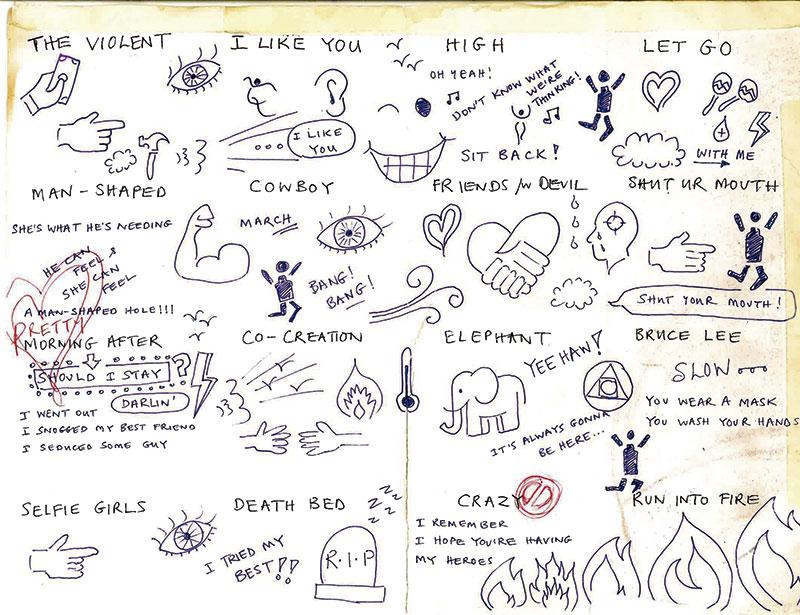 THE VIOLENT
I LIKE YOU
HIGH
LET GO
OH YEAH!
DON'T KNOW WHAT
WE'RE
THINKING!
... I LIKE
YOU
SIT BACK!
WITH ME
MAN-SHAPED
COWBOY
FRIENDS /W DEVIL
SHUT UR MOUTH
SHE'S WHAT HE'S NEEDING
HE CAN
FEEL &
SHE CAN
FEEL
A MAN-SHAPED HOLE!!!
MARCH
BANG!
BANG!
SHUT YOUR MOUTH!
PRETTY
MORNING AFTER
CO-CREATION
ELEPHANT
BRUCE LEE
SHOULD I STAY ?
DARLIN'
I WENT OUT
I SNOGGED MY BEST FRIEND
I SEDUCED SOME GUY
YEE HAW!
IT'S ALWAYS GONNA
BE HERE...
SLOW...
YOU WEAR A MASK
YOU WASH YOUR HANDS
SELFIE GIRLS
DEATH BED
CRAZY
RUN INTO FIRE
ZZZZ
I TRIED MY
BEST!!
R.I.P
I REMEMBER
I HOPE YOU'RE HAVING
MY HEROES